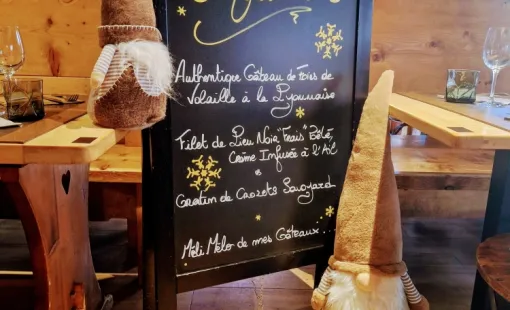 Authentique Gâteau de Foies de
Volaille à la Lyonnaise
Filet de Lieu Noir "Frais" Rôti,
Crème Infusée à l'Ail
&
Gratin de Crozets Savoyard
Méli Mélo de mes Gâteaux...